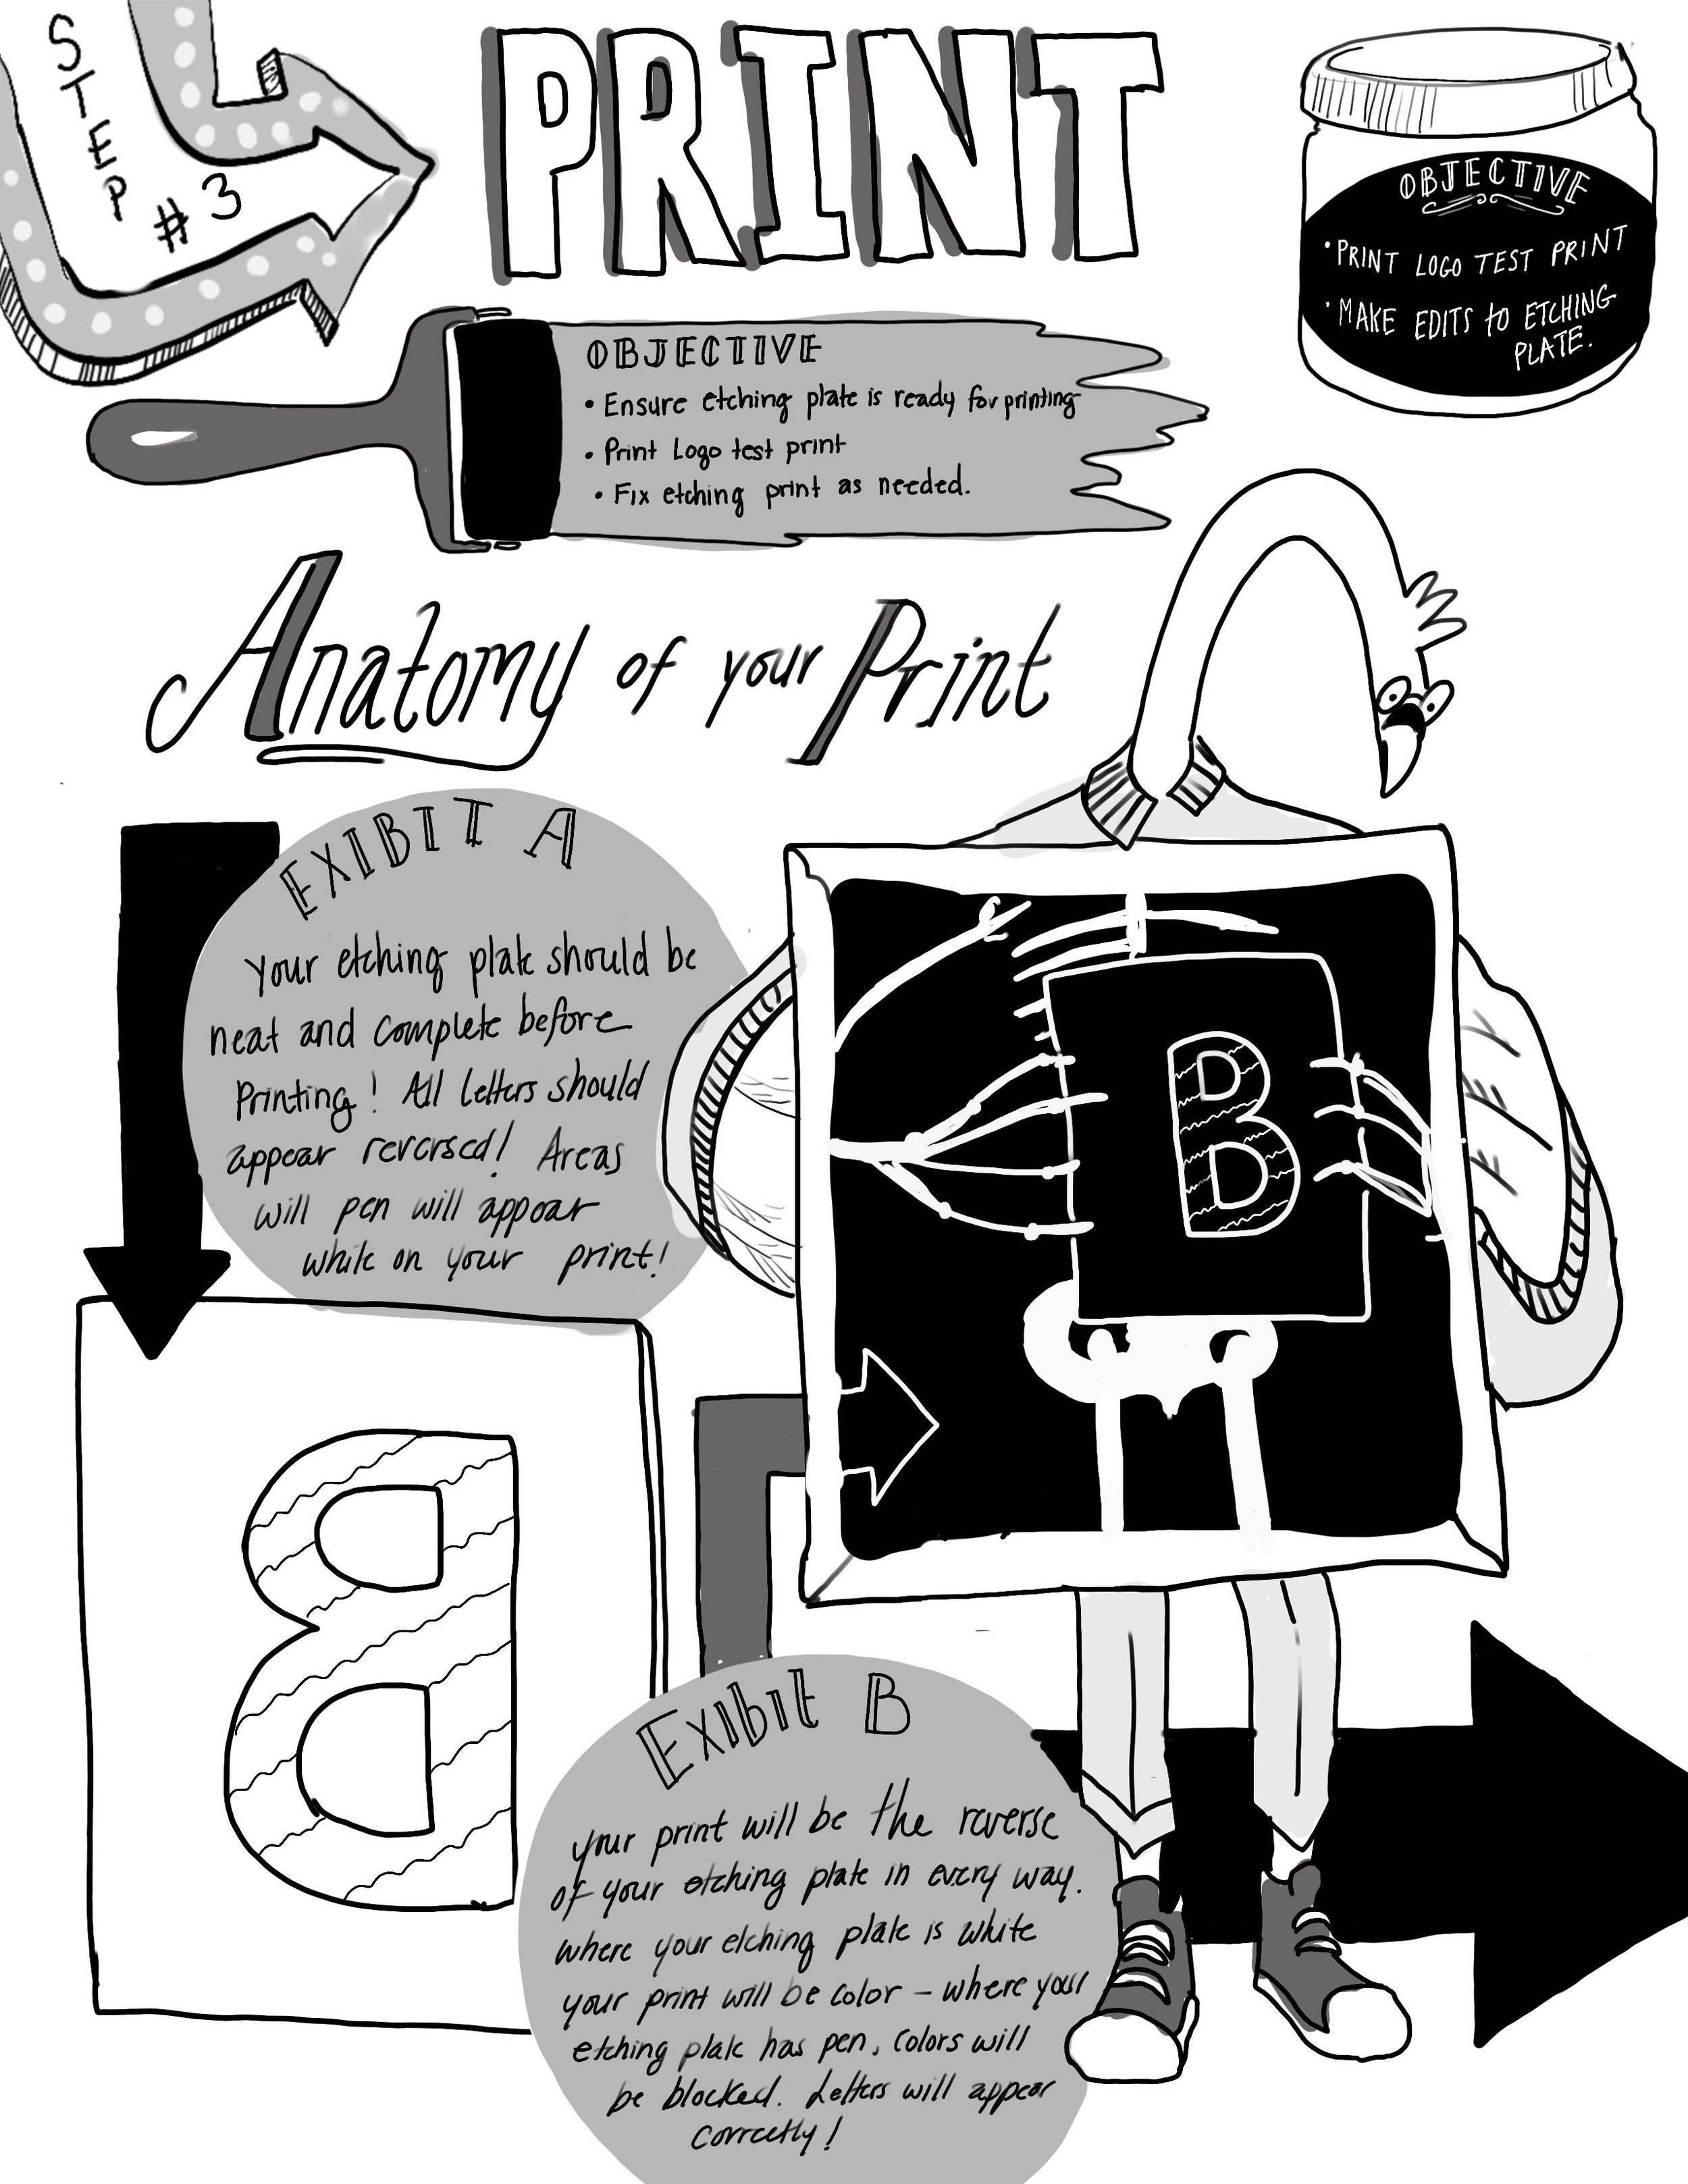 STEP #3
PRINT
OBJECTIVE
• PRINT LOGO TEST PRINT
• MAKE EDITS to ETCHING
PLATE.
OBJECTIVE
• Ensure etching plate is ready for printing
• Print Logo test print
• Fix etching print as needed.
Anatomy of your Print
EXIBIT A
Your etching plate should be
neat and complete before
Printing! All letters should
appear reversed! Areas
will pen will appear
while on your print!
B
B
Exibit B
your print will be the reverse
of your etching plate in every way.
where your etching plate is white
your print will be color – where your
etching plate has pen, colors will
be blocked. Letters will appear
correctly!